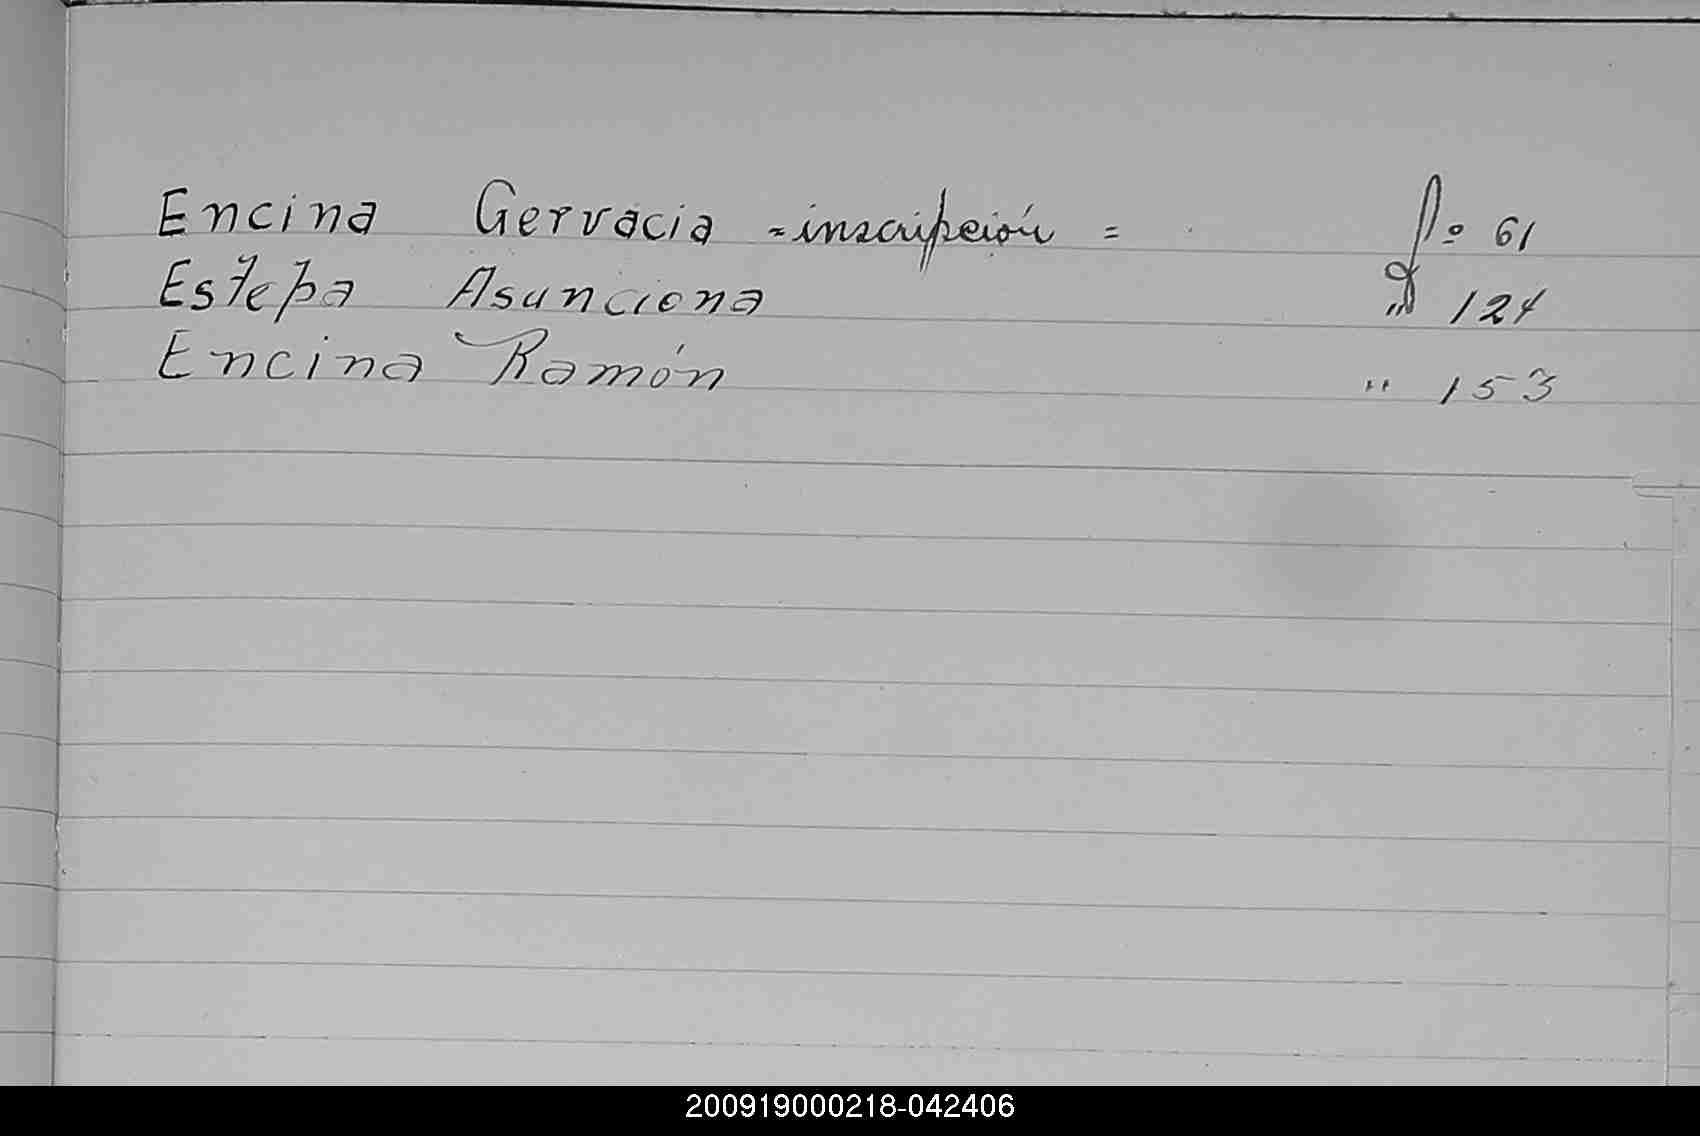 Encina Gervacia =inscripción= fº 61
Estepa Asunciona " 124
Encina Ramón " 153
200919000218-042406